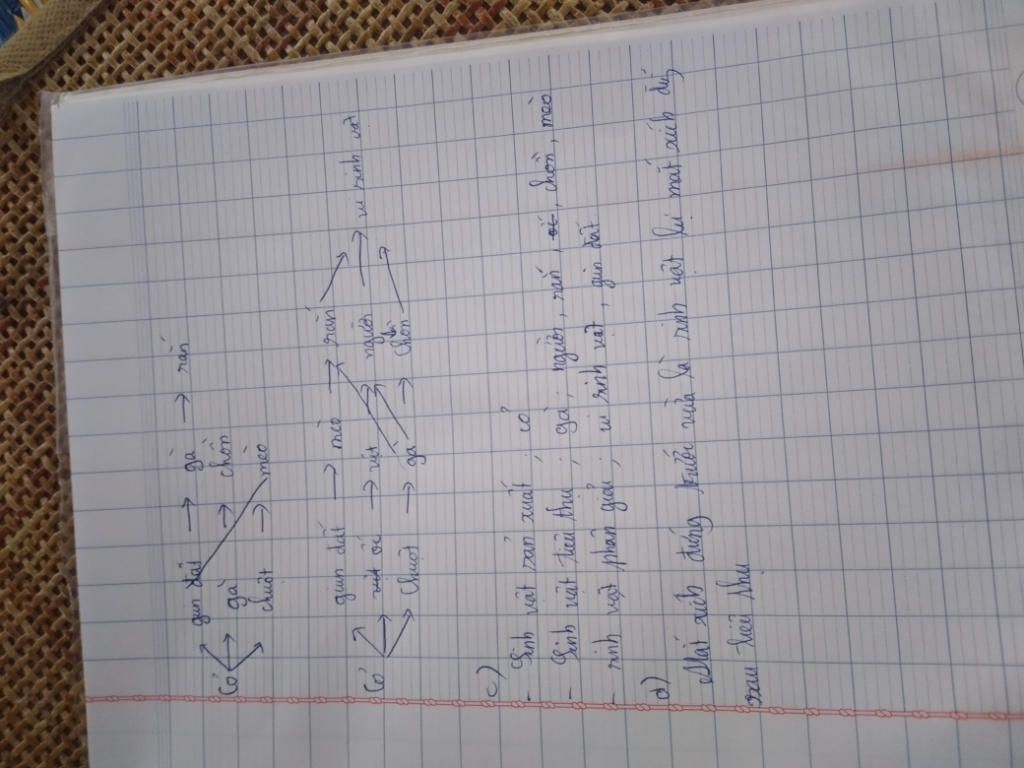 giun đất → gà → rắn
Cỏ → gà → chồn
chuột → mèo
giun đất → mèo → rắn
Cỏ → ốc → vịt → người → vi sinh vật
chuột → gà → chồn
c)
- Sinh vật sản xuất : cỏ
- Sinh vật tiêu thụ : gà, người, rắn, ốc, chồn, mèo
- sinh vật phân giải : vi sinh vật, giun đất
d)
Mắt xích đứng trước vừa là sinh vật bị mắt xích đứng
sau tiêu thụ